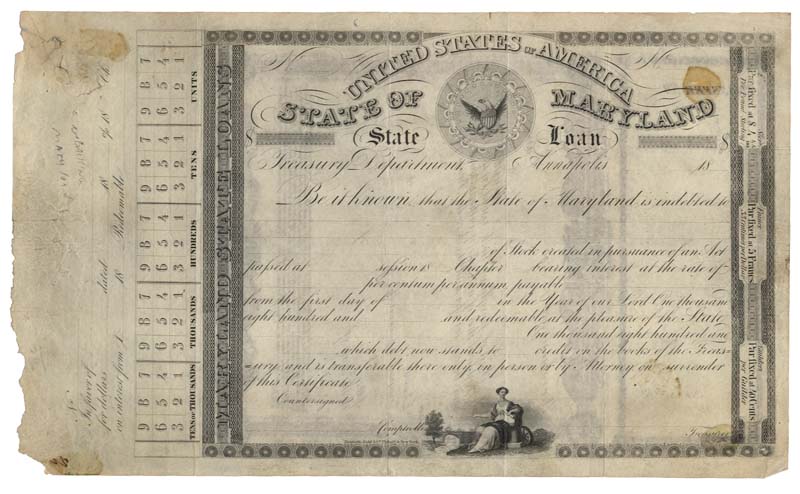 UNITED STATES OF AMERICA
No.
STATE OF MARYLAND
$ State Loan $
Treasury Department, Annapolis 18
Be it known that the State of Maryland is indebted to
of Stock created in pursuance of an Act
passed at session 18 Chapter bearing interest at the rate of
per centum per annum payable
from the first day of in the Year of our Lord One thousand
eight hundred and and redeemable at the pleasure of the State
One thousand eight hundred and
which debt now stands to credit on the books of the Treas-
ury and is transferable there only, in person or by Attorney on surrender
of this Certificate
Countersigned
Comptroller
Treasurer
MARYLAND STATE LOANS
9 8 7 6 5 4 3 2 1 UNITS
9 8 7 6 5 4 3 2 1 TENS
9 8 7 6 5 4 3 2 1 HUNDREDS
9 8 7 6 5 4 3 2 1 THOUSANDS
9 8 7 6 5 4 3 2 1 TENS OF THOUSANDS
No.
In favor of
for dollars dated 18
on interest from 18 Redeemable
of 18 Ch.
Par fixed at $ 4.44
Par fixed at 5 Francs
Guilders
Par fixed at 40 Cents
per Guilder